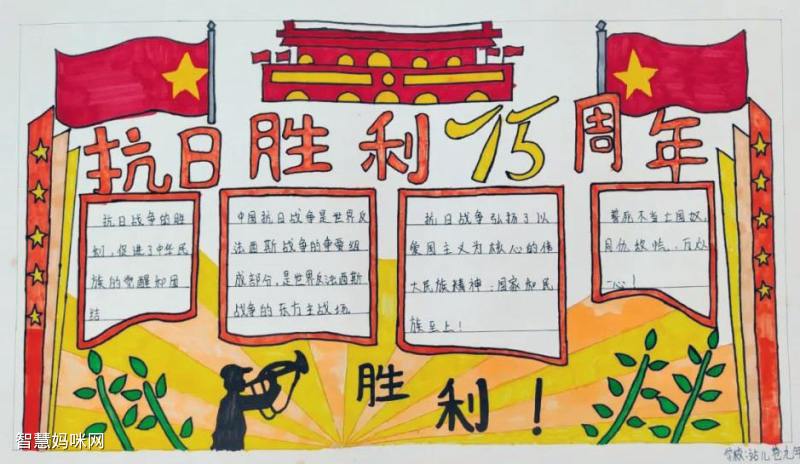 抗日胜利75周年
抗日战争的胜
利,促进了中华民
族的觉醒和团
结
中国抗日战争是世界反
法西斯战争的重要组
成部分,是世界反法西斯
战争的东方主战场
抗日战争弘扬了以
爱国主义为核心的伟
大民族精神:国家和民
族至上!
誓死不当亡国奴,
同仇敌忾,万众
一心!
胜利!
智慧妈咪网
学校: